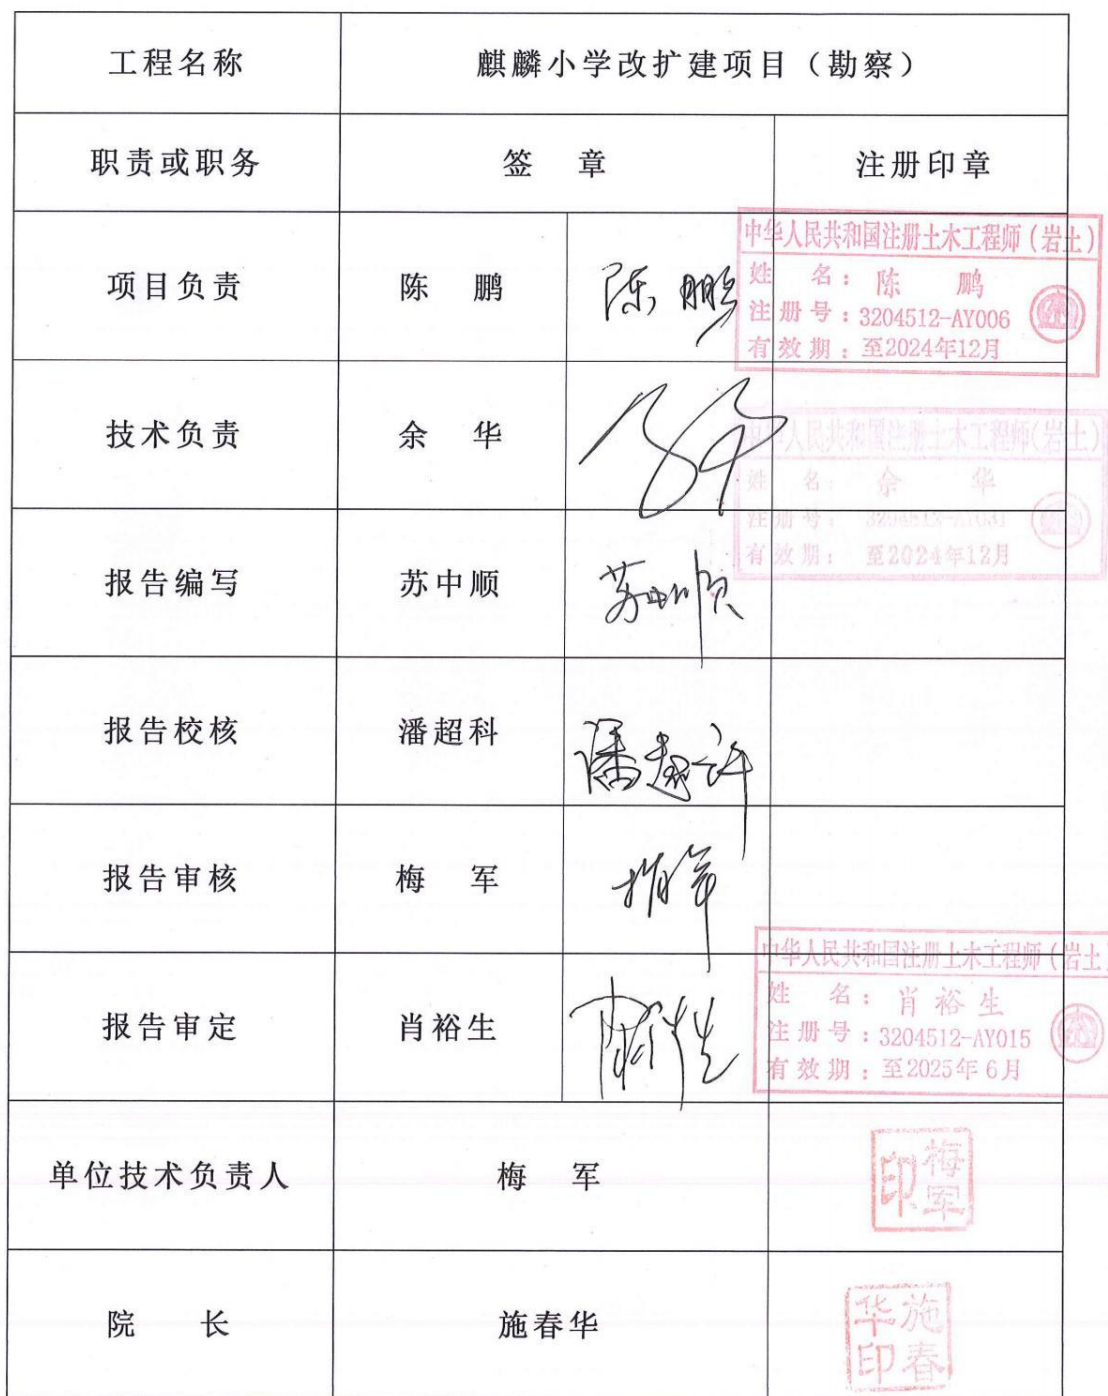 工程名称 麒麟小学改扩建项目（勘察）
职责或职务 签 章 注册印章
项目负责 陈 鹏 陈鹏
中华人民共和国注册土木工程师（岩土）
姓 名：陈 鹏
注册号：3204512-AY006
有效期：至2024年12月
技术负责 余 华
中华人民共和国注册土木工程师(岩土)
姓 名：余 华
注册号：3204512-AY031
有效期：至2024年12月
报告编写 苏中顺 苏中顺
报告校核 潘超科 潘超科
报告审核 梅 军 梅军
报告审定 肖裕生 肖裕生
中华人民共和国注册土木工程师（岩土）
姓 名：肖裕生
注册号：3204512-AY015
有效期：至2025年6月
单位技术负责人 梅 军 梅军印
院 长 施春华 施春华印